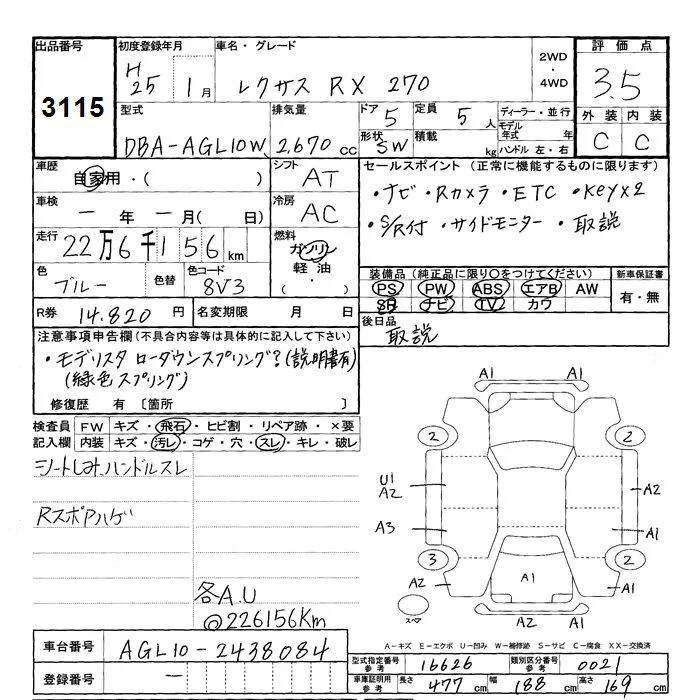 出品番号 初度登録年月 車名・グレード 2WD・4WD 評価点
3115 H25 1月 レクサス RX 270 3.5
型式 排気量 ドア 定員 ディーラー・並行 外装 内装
DBA-AGL10W 2,670cc 5 5人 モデル年式 年 C C
形状 SW 積載 kg ハンドル 左・右
車歴 自家用・( ) シフト AT セールスポイント(正常に機能するものに限ります)
車検 ー年ー月( 日) 冷房 AC ・ナビ・Rカメラ・ETC・Key×2
・S/R付・サイドモニター・取説
走行 22万6千156km 燃料 ガソリン・軽油・( )
色 ブルー 色替 色コード 8V3
装備品(純正品に限り〇をつけてください) 新車保証書
PS PW ABS エアB AW 有・無
SR ナビ TV カワ
R券 14.820円 名変期限 月 日 後日品 取説
注意事項申告欄(不具合内容等は具体的に記入して下さい)
・モデリスタ ローダウンスプリング?(説明書有)
(緑色スプリング)
修復歴 有〔箇所 〕
検査員記入欄 FW キズ・飛石・ヒビ割・リペア跡・×要
内装 キズ・汚レ・コゲ・穴・スレ・キレ・破レ
シートしみ、ハンドルスレ
RスポAハゲ
各A.U
@226156Km
A1 A1
2 2
U1
A2 A2
A3 A1
3 2
A2 A1 A1
スペア A2 A1
A-キズ E-エクボ U-凹み W-補修跡 S-サビ C-腐食 XX-交換済
車台番号 AGL10-2438084
登録番号 ー
型式指定番号 参考 16626 類別区分番号 参考 0021
車庫証明用 参考 長さ 477cm 幅 188cm 高さ 169cm